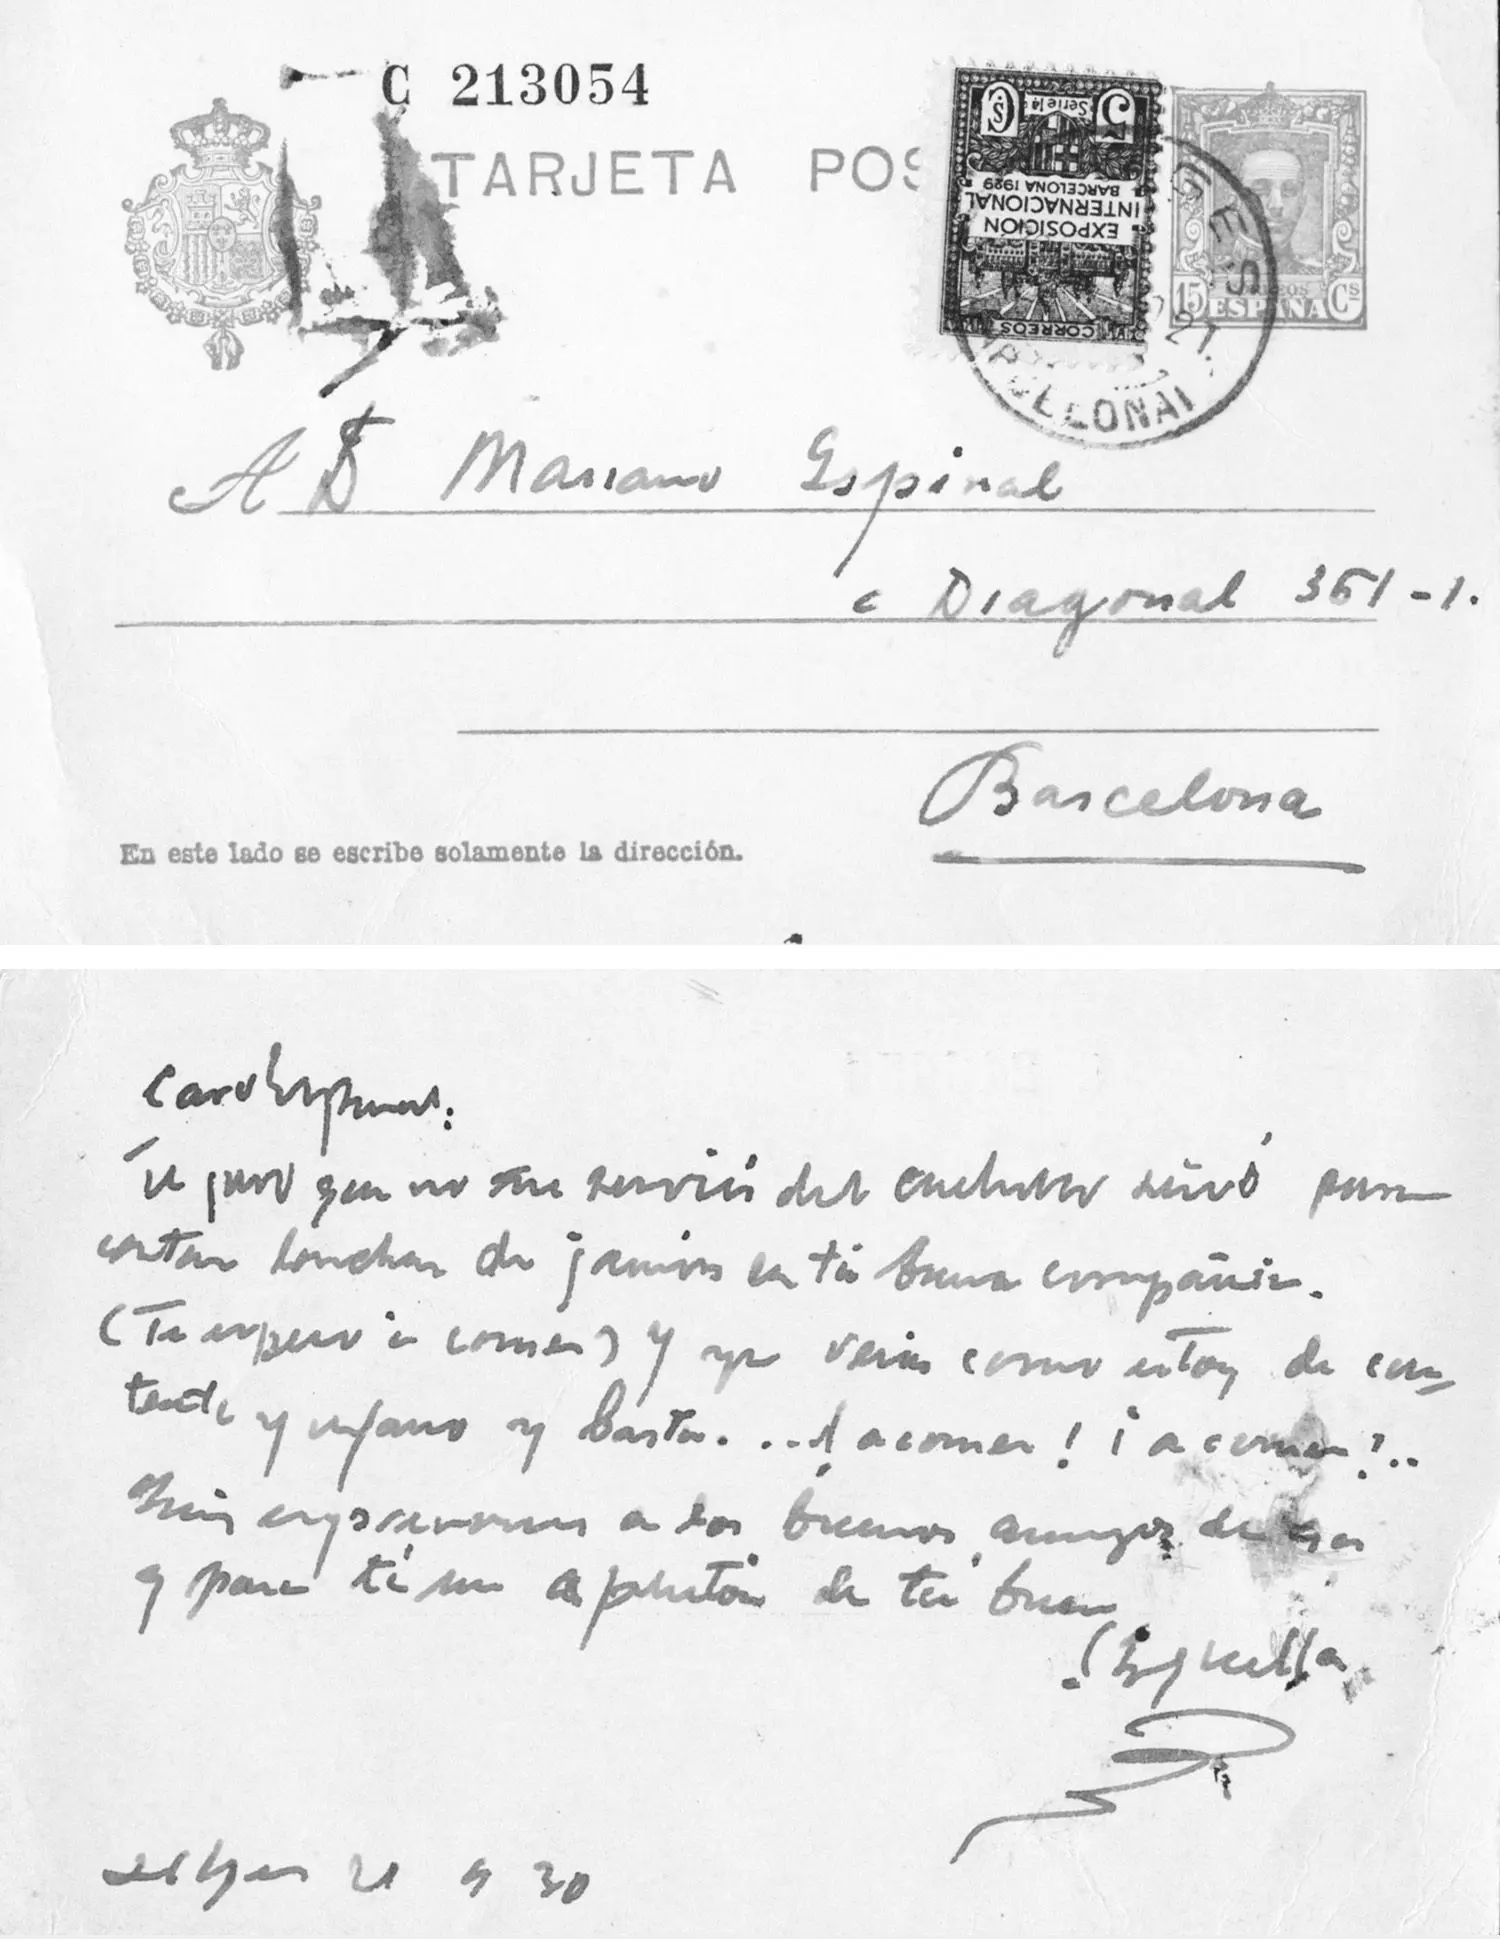 C 213054
TARJETA POS
5 Cs
Serie 1ª
EXPOSICIÓN
INTERNACIONAL
BARCELONA 1929
CORREOS
GES
15 Cs
ESPAÑA
A D. Mariano Espinal
c Diagonal 361-1.
Barcelona
En este lado se escribe solamente la dirección.
Caro Espinal:
Te juro que no me servirá del
cortar lonchas de jamón en tu buena compañia.
(Te espero a comer) y ya verás como estoy de con-
tento y ufano y basta. ...¡A comer! ¡a comer!..
a los buenos amigos de
y para ti un apretón de tu buen
21 9 30